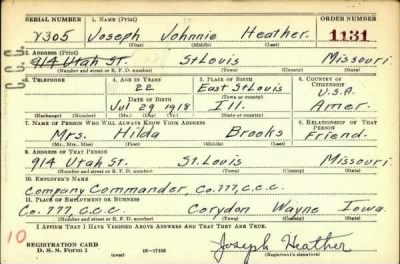 SERIAL NUMBER 1. NAME (Print) ORDER NUMBER
V305 Joseph Johnnie Heather. 1131
(First) (Middle) (Last)
C.C.C.
2. ADDRESS (Print)
914 Utah St. St Louis Missouri
(Number and street or R. F. D. number) (Town) (County) (State)
3. TELEPHONE 4. AGE IN YEARS 5. PLACE OF BIRTH 6. COUNTRY OF CITIZENSHIP
22 East St Louis U.S.A.
DATE OF BIRTH
Jul 29 1918 Ill. Amer.
(Exchange) (Number) (Mo.) (Day) (Yr.) (State or country)
7. NAME OF PERSON WHO WILL ALWAYS KNOW YOUR ADDRESS 8. RELATIONSHIP OF THAT PERSON
Mrs. Hilda Brooks Friend.
(Mr., Mrs., Miss) (First) (Middle) (Last)
9. ADDRESS OF THAT PERSON
914 Utah St. St. Louis Missouri
(Number and street or R. F. D. number) (Town) (County) (State)
10. EMPLOYER'S NAME
Company Commander, Co. 777, C.C.C.
11. PLACE OF EMPLOYMENT OR BUSINESS
Co. 777, C.C.C. Corydon Wayne Iowa.
(Number and street or R. F. D. number) (Town) (County) (State)
I AFFIRM THAT I HAVE VERIFIED ABOVE ANSWERS AND THAT THEY ARE TRUE.
10
REGISTRATION CARD
D. S. S. Form 1 (over) 16—17105 Joseph Heather
(Registrant's signature)